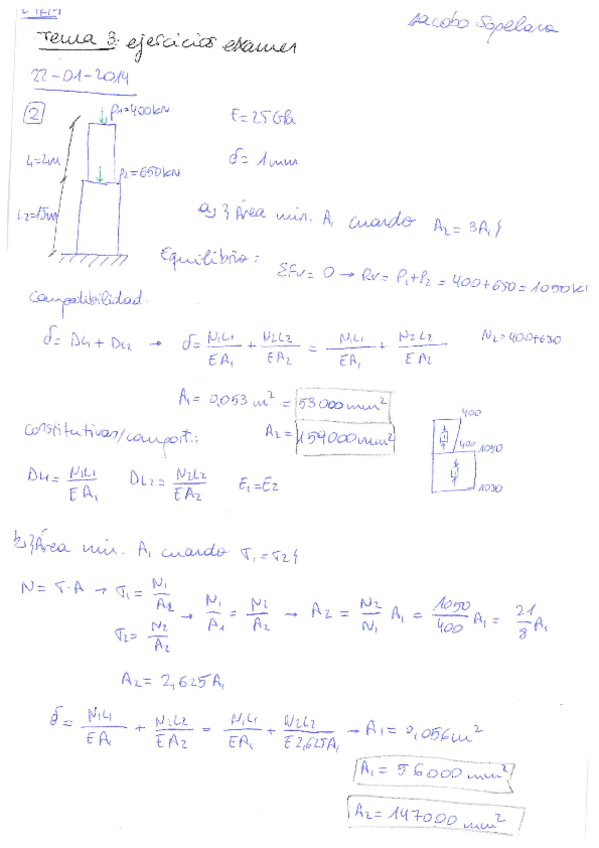 Jacobo Sapelara
Tema 3: ejercicios examen
22-01-2014
2
P1=400kN
E=25GPa
L1=2m
δ=1mm
P2=650kN
L2=1'5m
a) ¿Área min. A1 cuando A2=3A1?
Equilibrio: ΣFv=0 → Rv=P1+P2=400+650=1050kN
Compatibilidad:
δ=DL1+DL2 → δ= N1L1/EA1 + N2L2/EA2 = N1L1/EA1 + N2L2/EA2 N2=400+650
A1=0,053m² = 53000mm²
A2= 159000mm²
Constitutivas/comport.:
DL1= N1L1/EA1 DL2= N2L2/EA2 E1=E2
400
400
1050
1050
b) ¿Área min. A1 cuando σ1=σ2?
N=σ·A → σ1= N1/A1
σ2= N2/A2
→ N1/A1 = N2/A2 → A2= N2/N1 A1 = 1050/400 A1 = 21/8 A1
A2=2,625A1
δ= N1L1/EA1 + N2L2/EA2 = N1L1/EA1 + N2L2/E2,625A1 → A1=0,056m²
A1=56000mm²
A2=147000mm²